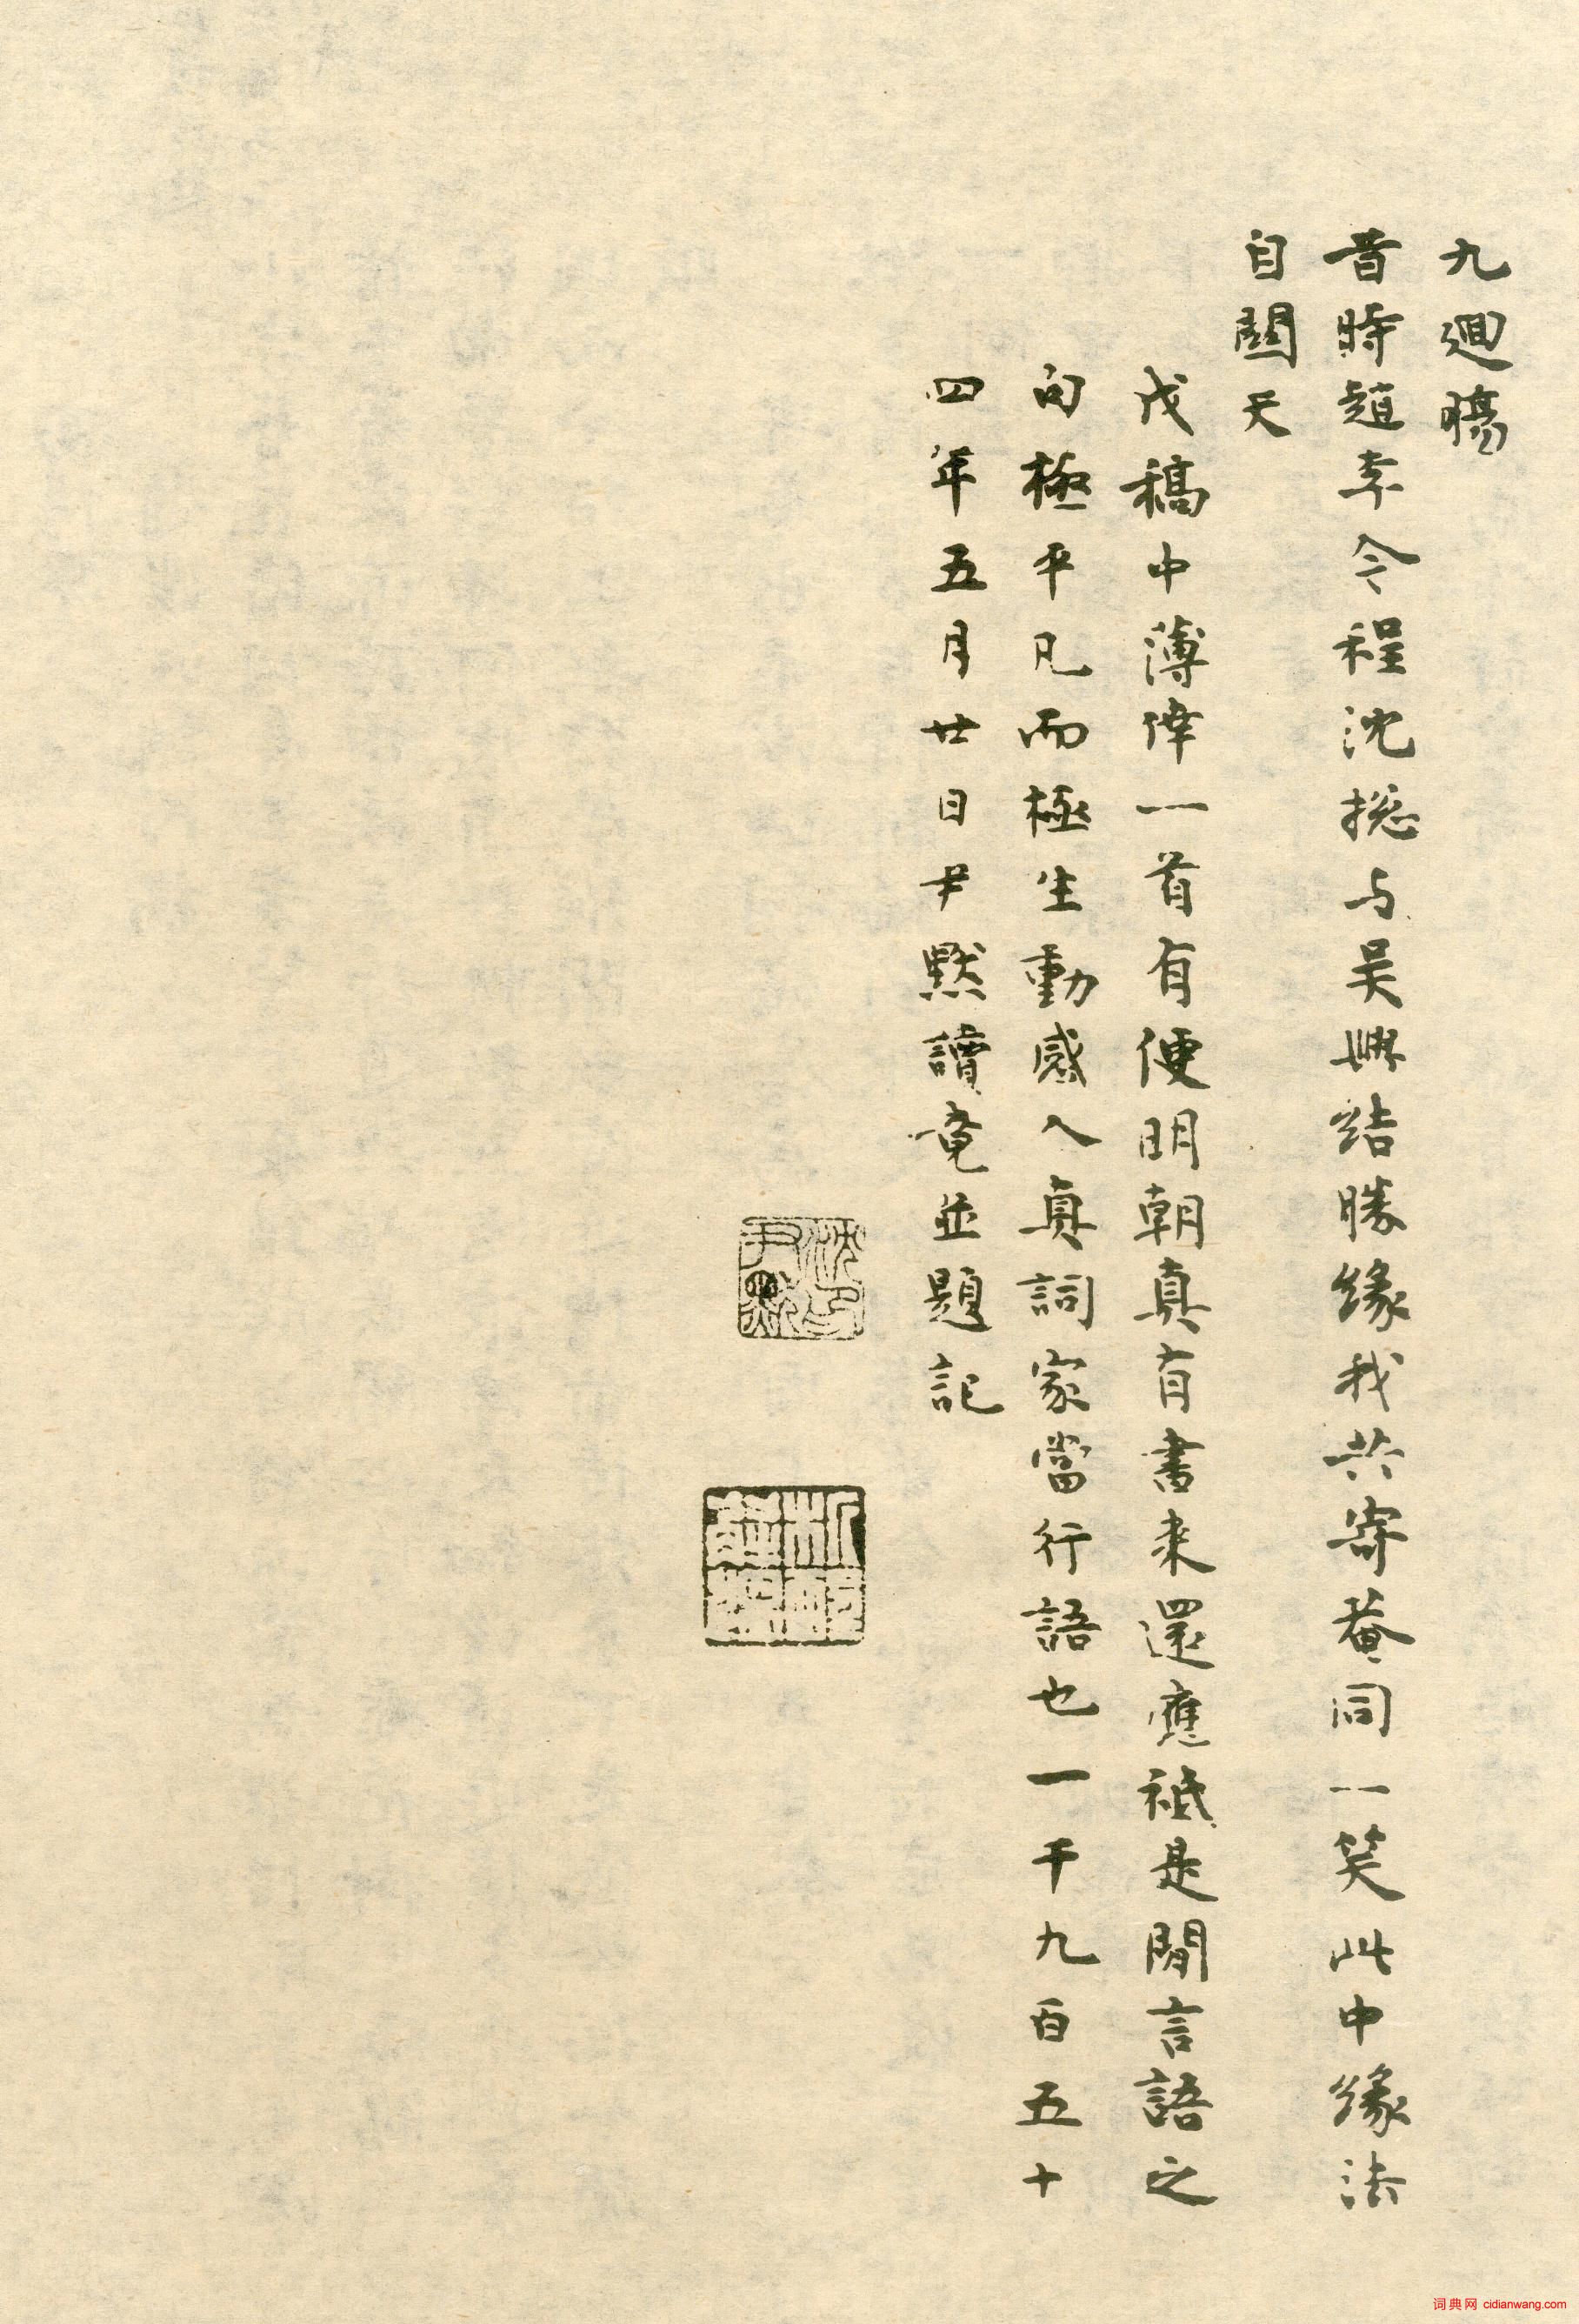 九迴腸
昔時趙李今程沈捴与吴興結勝緣我共寄菴同一笑此中緣法
自關天
戊稿中薄倖一首有便明朝真有書来還應祇是閒言語之
句極平凡而極生動感人真詞家當行語也一千九百五十
四年五月廿日尹默讀竟並題記
沈尹默印
词典网 cidianwang.com